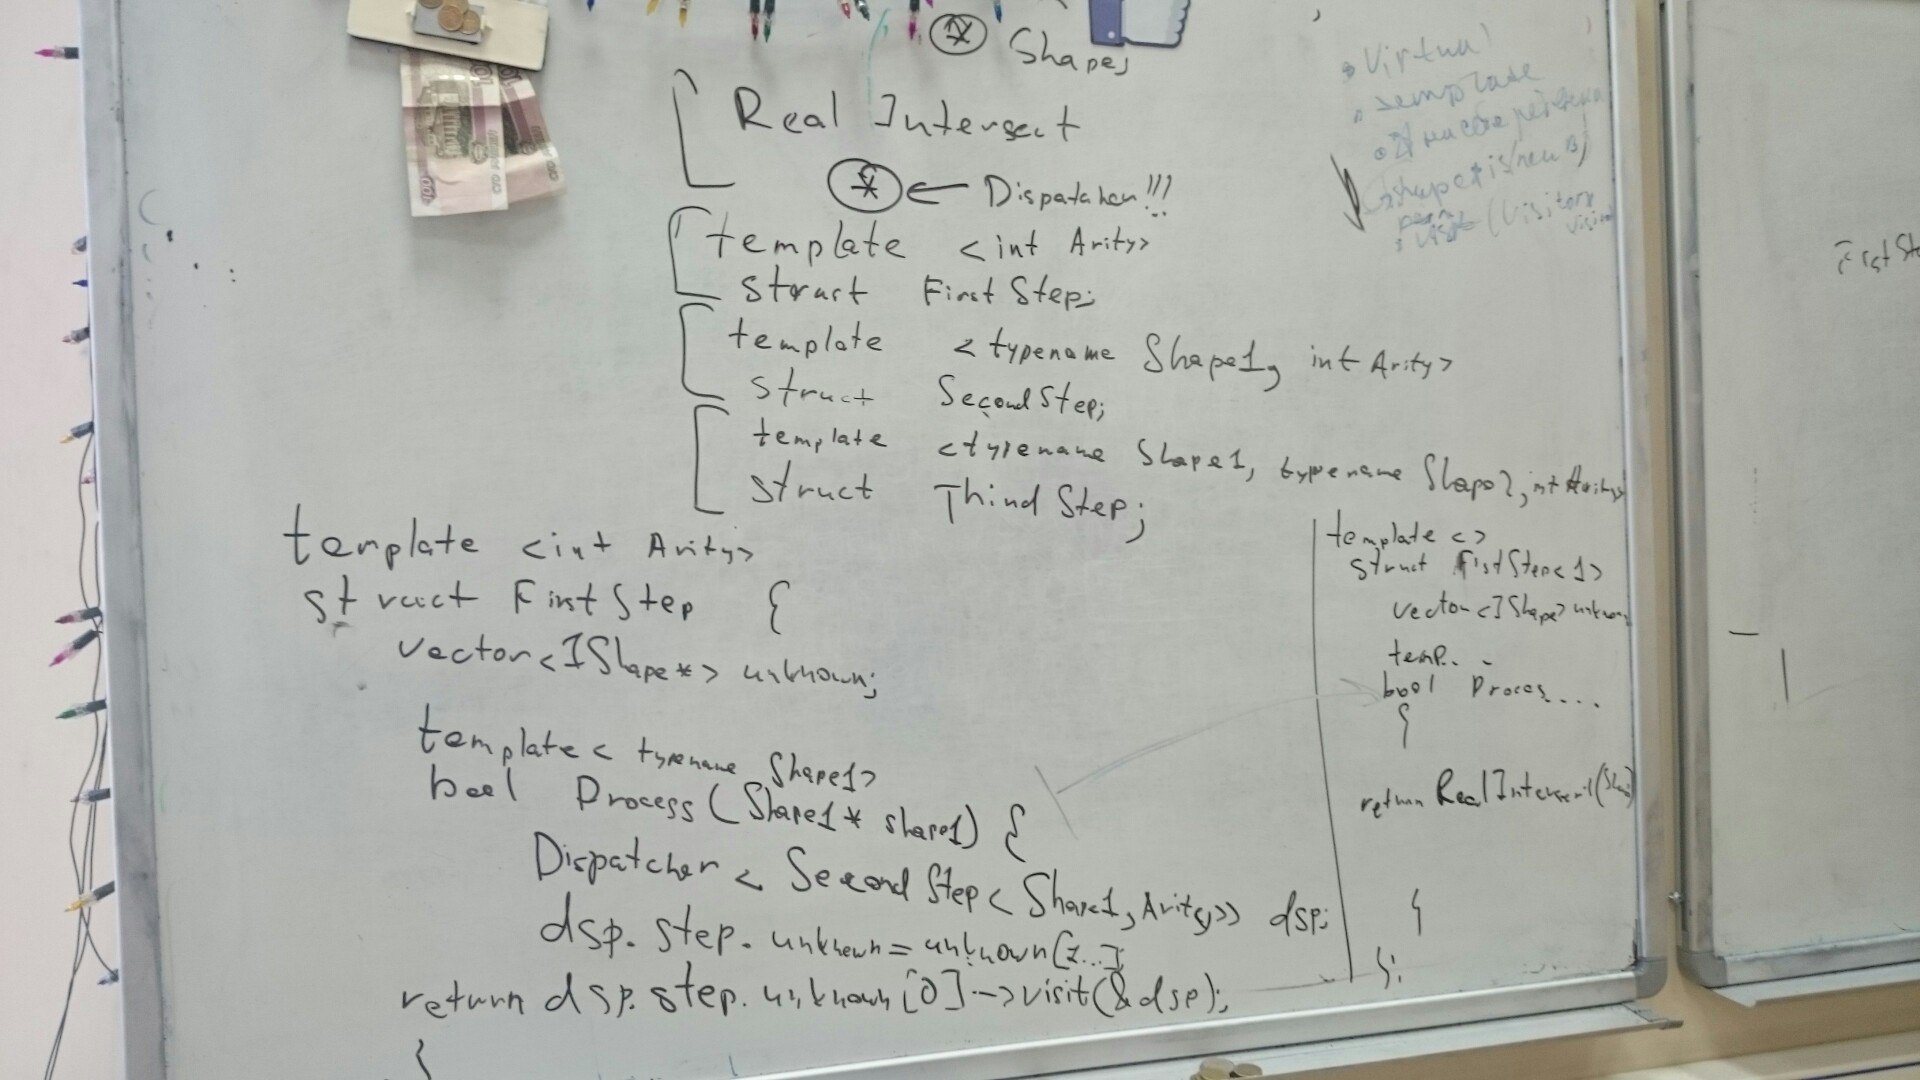 Shapes
Real Intersect
Dispatcher!!!
template <int Arity>
struct First Step;
template <typename Shape1, int Arity>
struct Second Step;
template <typename Shape1, typename Shape2, int Arity>
struct Third Step;
template <int Arity>
struct First Step {
vector<IShape*> unknown;
template< typename Shape1>
bool Process(Shape1* shape1) {
Dispatcher < Second Step< Shape1, Arity>> dsp;
dsp. step. unknown = unknown[1...];
return dsp. step. unknown [0]->visit(&dsp);
}
• Virtual
template
template <>
struct FistStep<1>
vector<IShape> unknown
temp. .
bool Proces...
{
return RealIntersect(Sha
}
};
FistSte
100
100
СТО РУБЛЕЙ